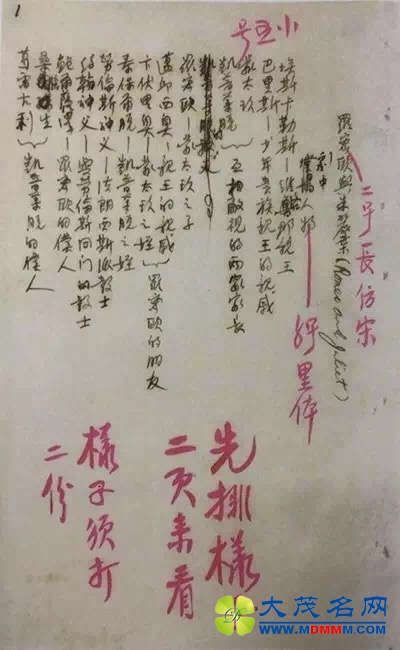 1
羅密歐與朱麗葉 (Romeo and Juliet)
二号長仿宋
劇中人物
小五号
埃斯卡勒斯—維那親王
巴里斯—少年貴族親王的親戚
蒙太玖
凱普萊脫
互相敵視的兩家家長
羅密歐—蒙太玖之子
邱西奧—親王的親戚
卞伏里奧—蒙太玖之姪
羅密歐的朋友
泰保爾脫—凱普萊脫之姪
勞倫斯神父—法朗西斯派教士
約翰神父—與勞倫斯同門的教士
鮑爾薩—羅密歐的僕人
桑泊生
葛雷古利
凱普萊脫的僕人
先排樣
二頁来看
樣子須打
二份
大茂名网
www.DMMMM.com